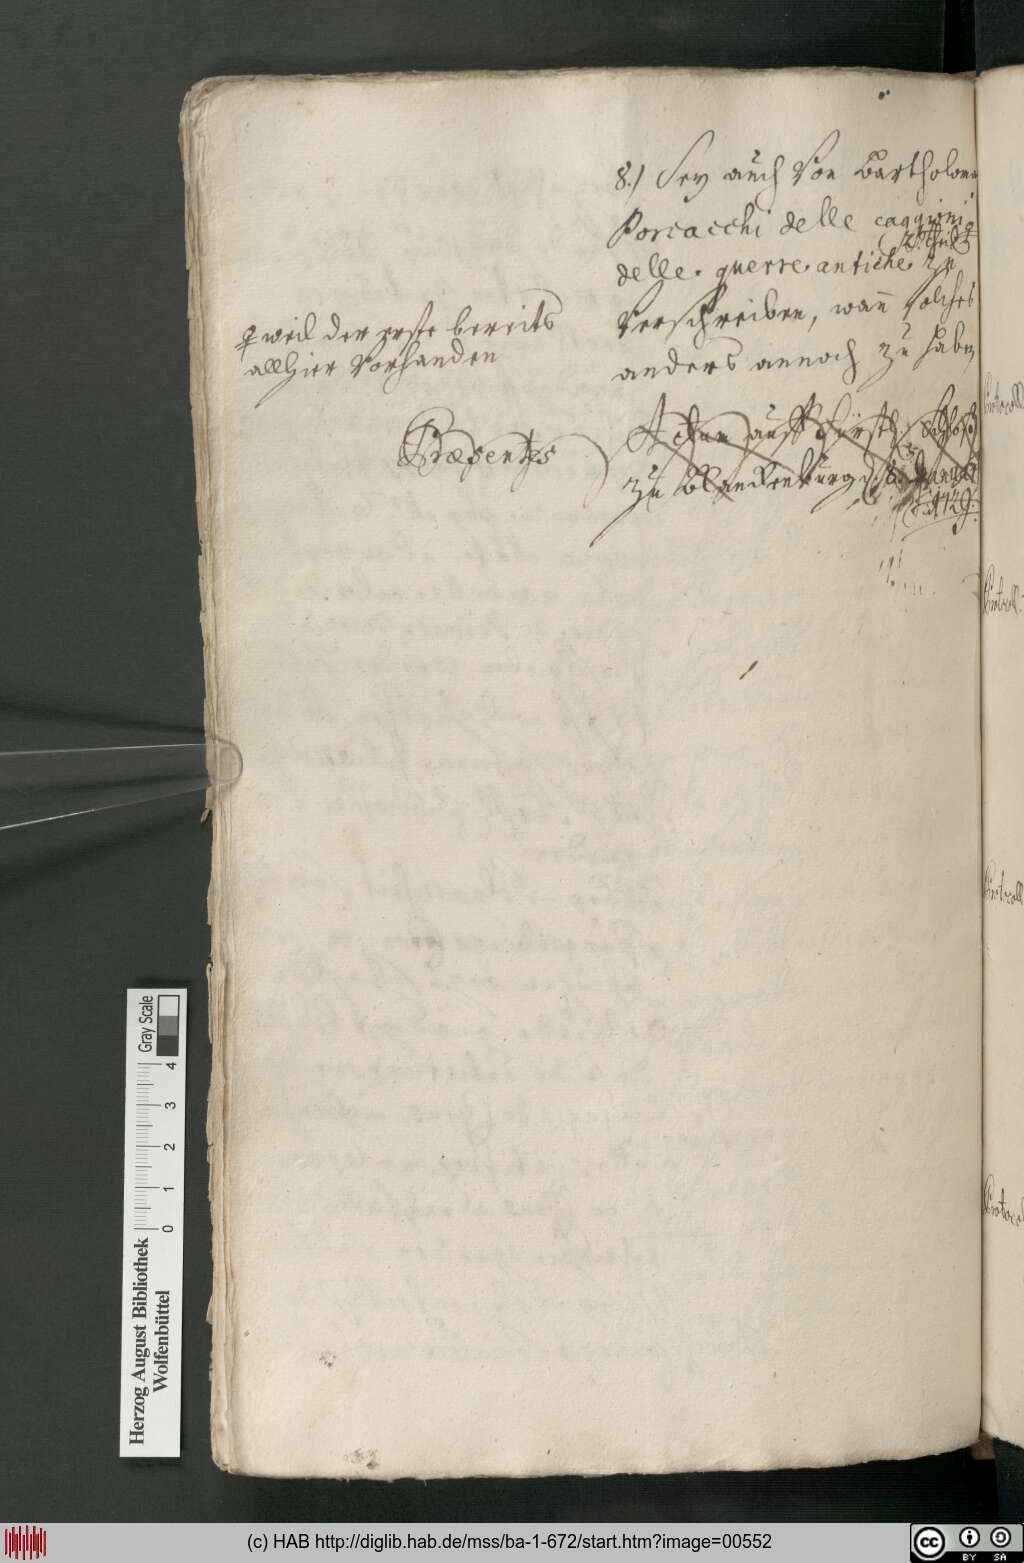 8.) Sey auch von Bartholom
Porcacchi delle caggioni
2. Theil
delle guerre antiche zu
verschreiben, wan solches
anders annoch zu haben
weil der erste bereits
allhier vorhanden
Præsentes
Actum auff Fürstl. Schloß
zu Blanckenburg d. 8.
1729.
Protocoll
Protocoll.
Protocoll
Protocol
Gray Scale
0 1 2 3 4
Herzog August Bibliothek
Wolfenbüttel
(c) HAB http://diglib.hab.de/mss/ba-1-672/start.htm?image=00552
cc BY SA